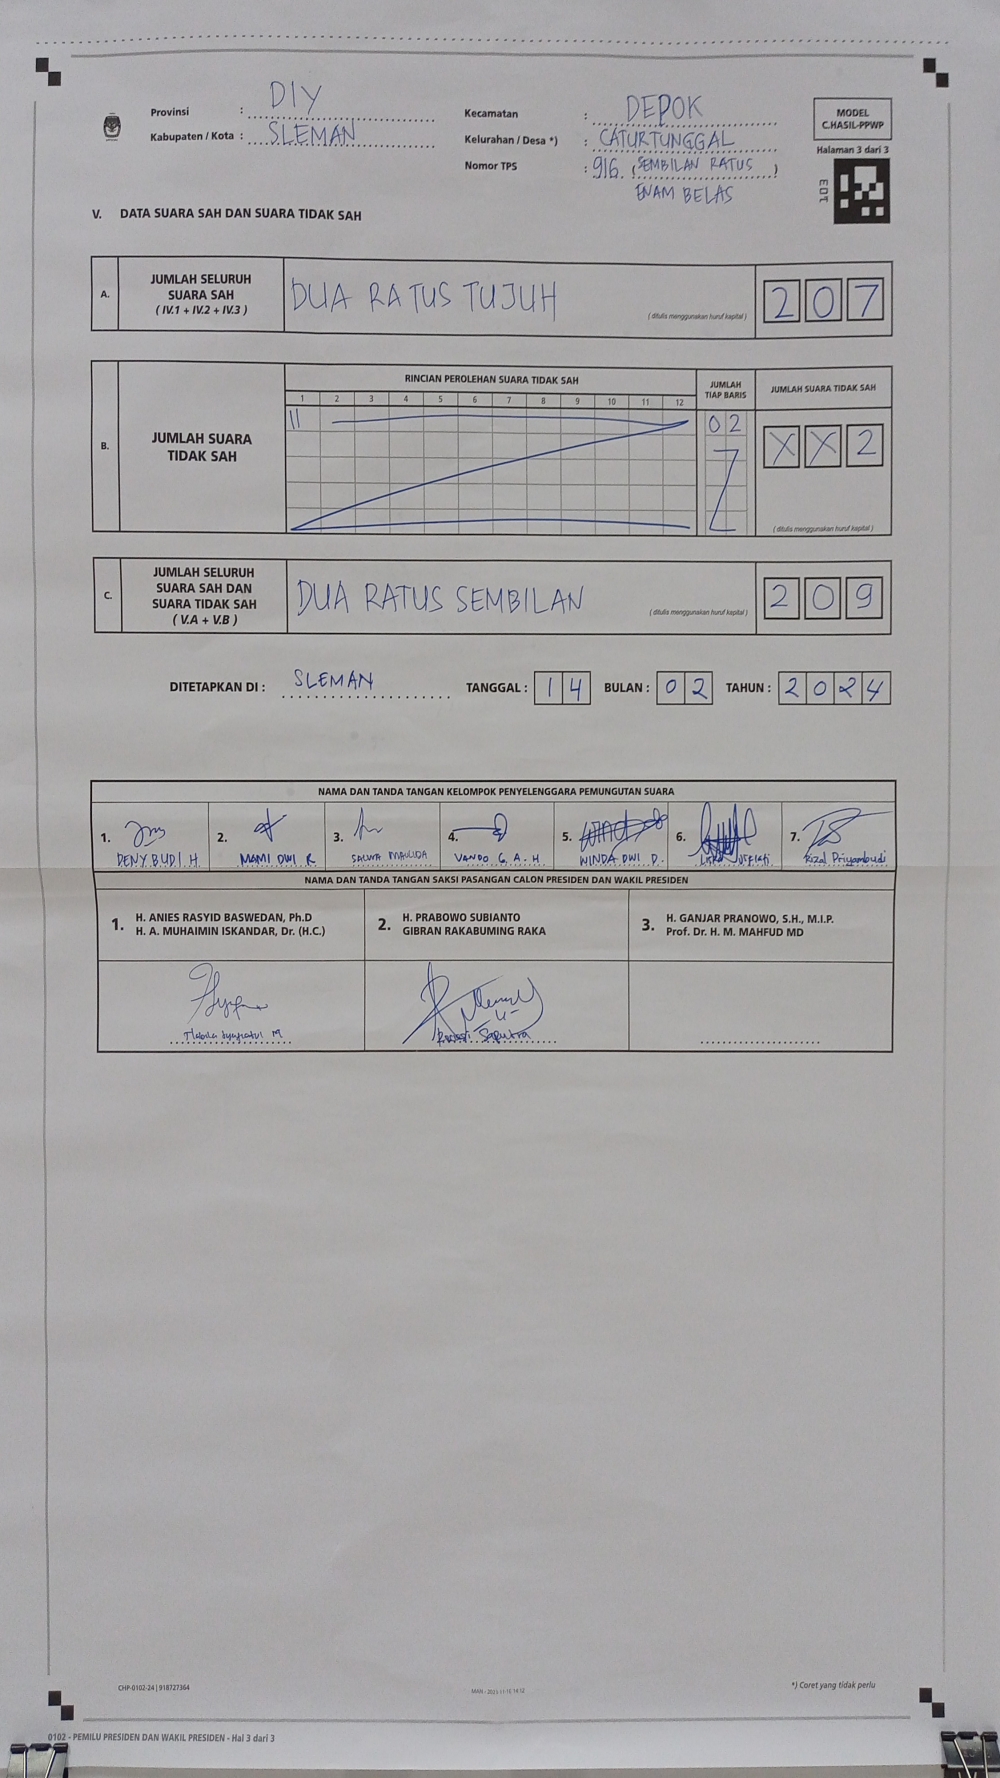 Provinsi : DIY
Kabupaten / Kota : SLEMAN
Kecamatan : DEPOK
Kelurahan / Desa *) : CATURTUNGGAL
Nomor TPS : 916. (SEMBILAN RATUS)
ENAM BELAS
MODEL
C.HASIL-PPWP
Halaman 3 dari 3
V. DATA SUARA SAH DAN SUARA TIDAK SAH
A. JUMLAH SELURUH
SUARA SAH
( IV.1 + IV.2 + IV.3 )
DUA RATUS TUJUH
( ditulis menggunakan huruf kapital )
2 0 7
B. JUMLAH SUARA
TIDAK SAH
RINCIAN PEROLEHAN SUARA TIDAK SAH
1 2 3 4 5 6 7 8 9 10 11 12
JUMLAH
TIAP BARIS
0 2
JUMLAH SUARA TIDAK SAH
X X 2
( ditulis menggunakan huruf kapital )
C. JUMLAH SELURUH
SUARA SAH DAN
SUARA TIDAK SAH
( V.A + V.B )
DUA RATUS SEMBILAN
( ditulis menggunakan huruf kapital )
2 0 9
DITETAPKAN DI : SLEMAN TANGGAL : 1 4 BULAN : 0 2 TAHUN : 2 0 2 4
NAMA DAN TANDA TANGAN KELOMPOK PENYELENGGARA PEMUNGUTAN SUARA
1. 2. 3. 4. 5. 6. 7.
DENY BUDI. H. MAMI DWI R SALWA MAULIDA VANDO G. A. H WINDA DWI. P. Rizal Priyambudi
NAMA DAN TANDA TANGAN SAKSI PASANGAN CALON PRESIDEN DAN WAKIL PRESIDEN
1. H. ANIES RASYID BASWEDAN, Ph.D
H. A. MUHAIMIN ISKANDAR, Dr. (H.C.)
2. H. PRABOWO SUBIANTO
GIBRAN RAKABUMING RAKA
3. H. GANJAR PRANOWO, S.H., M.I.P.
Prof. Dr. H. M. MAHFUD MD
Saputra
CHP-0102-24 | 918727364
*) Coret yang tidak perlu
0102 - PEMILU PRESIDEN DAN WAKIL PRESIDEN - Hal 3 dari 3